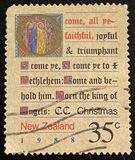 come, all ye
faithful, joyful
& triumphant
come ye, O come ye to
Bethlehem: Come and be-
hold him. Born the king of
Angels: CC Christmas
New Zealand 35c
1988